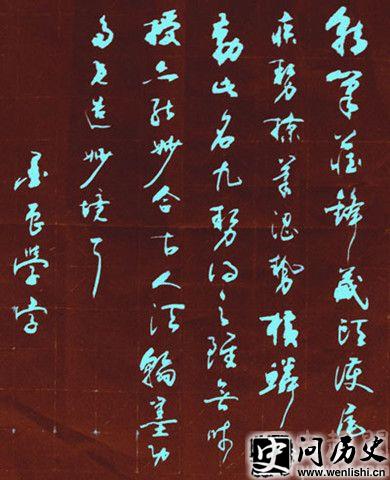 轉筆藏鋒藏頭護尾
疾勢掠筆澀勢橫鱗
勒此名九勢得之雖無師
授亦能妙合古人須翰墨功
多即造妙境耳
史问历史
www.wenlishi.cn